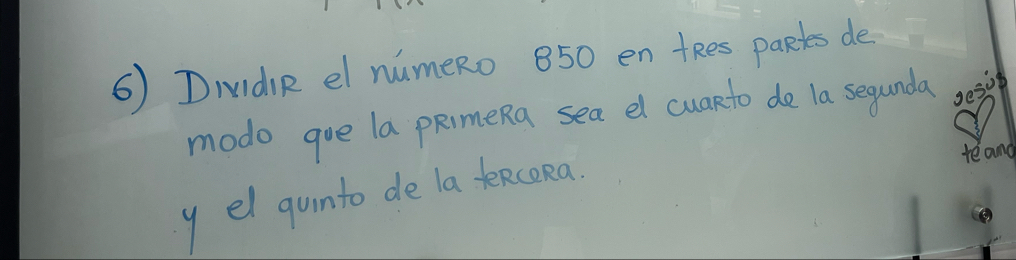 6) Dividir el número 850 en tres partes de
modo que la primera sea el cuarto de la segunda
y el quinto de la tercera.
Jesús
te amo